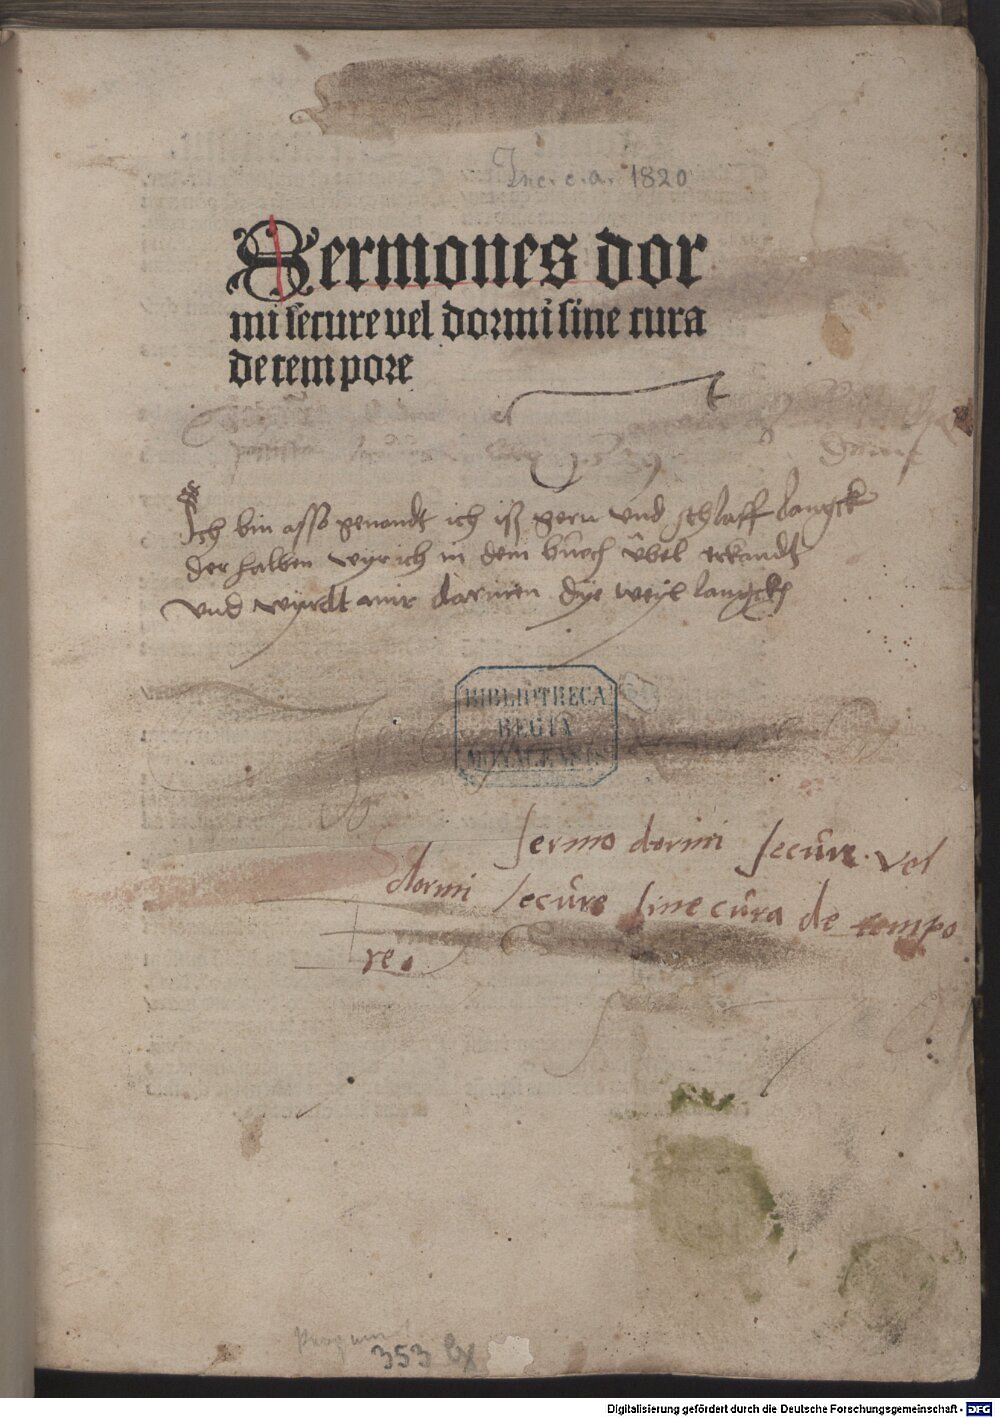 Inc. c. a. 1820
Sermones dor
mi secure vel dormi sine cura
de tempore
Ich bin also genandt ich iß gern und schlaff langck
der halben wyr ich in dem buech übel erkandt
und wyrdt mir darinen dye weyl langck
BIBLIOTHECA
REGIA
MONACENSIS
sermo dormi secure. vel
dormi secure sine cura de tempo
re.
353
Digitalisierung gefördert durch die Deutsche Forschungsgemeinschaft - DFG